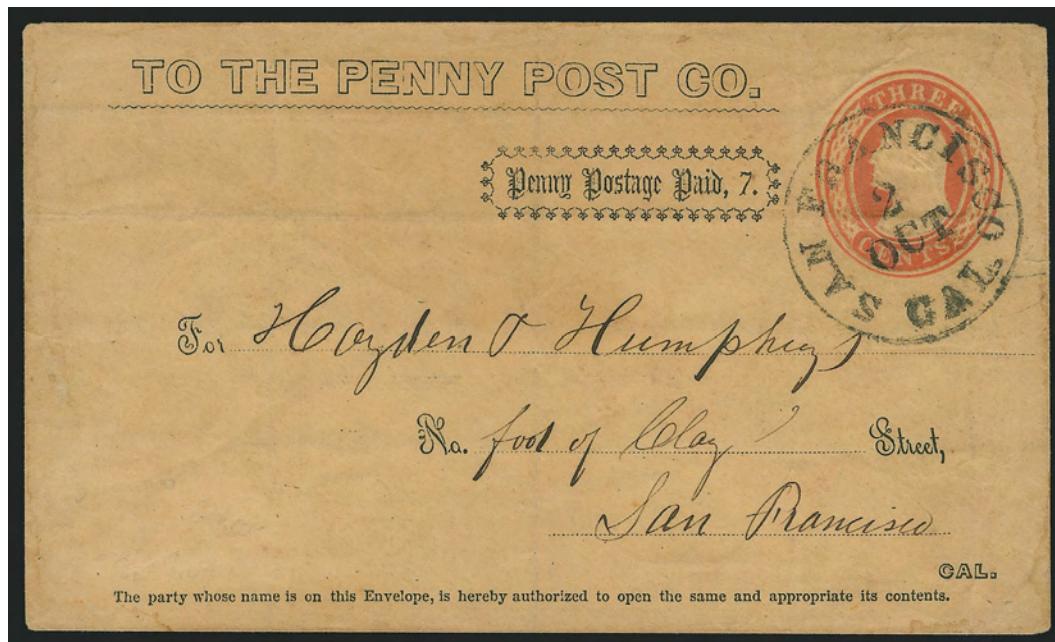 TO THE PENNY POST CO.
Penny Postage Paid, 7.
THREE
CENTS
SAN FRANCISCO CAL.
2
OCT
For Hayden & Humphreys
No. foot of Clay Street,
San Francisco
CAL.
The party whose name is on this Envelope, is hereby authorized to open the same and appropriate its contents.